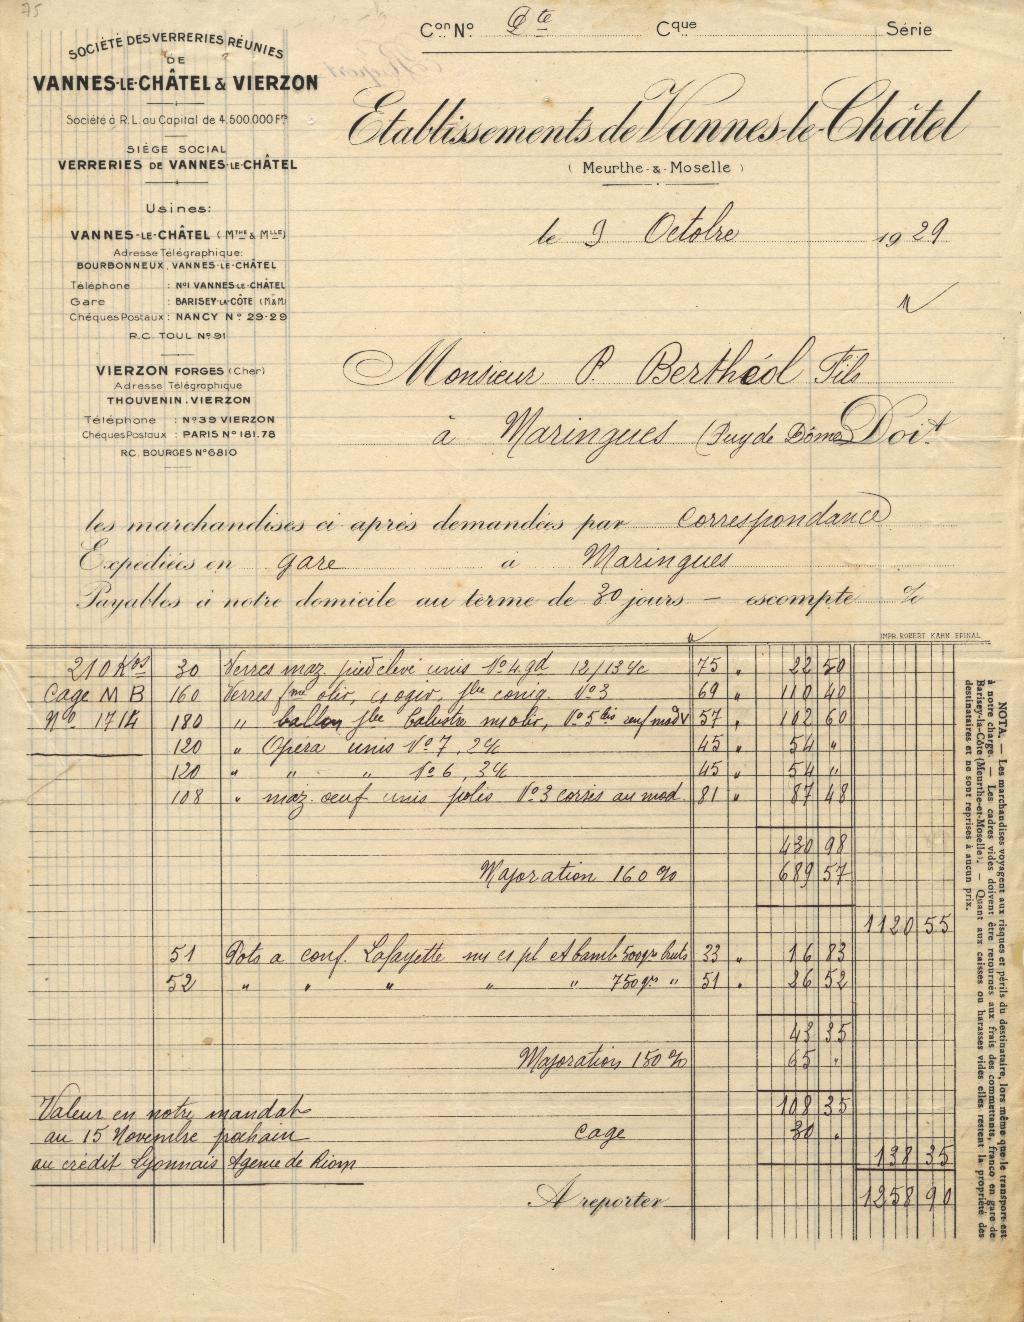 75
SOCIÉTÉ DES VERRERIES RÉUNIES
DE
VANNES-LE-CHÂTEL & VIERZON
Société à R.L. au Capital de 4.500.000 Frs
SIÈGE SOCIAL
VERRERIES DE VANNES-LE-CHÂTEL
Usines:
VANNES-LE-CHÂTEL (MTHE & MLLE)
Adresse Télégraphique:
BOURBONNEUX, VANNES-LE-CHÂTEL
Téléphone : No 1 VANNES-LE-CHÂTEL
Gare : BARISEY-LA-CÔTE (M&M)
Chèques Postaux : NANCY No 29-29
R.C. TOUL No 91
VIERZON FORGES (Cher)
Adresse Télégraphique
THOUVENIN.VIERZON
Téléphone : No 39 VIERZON
Chèques Postaux : PARIS No 181.78
R.C. BOURGES No 6810
Con No Cte Cque Série
Etablissements de Vannes-le-Châtel
(Meurthe-&-Moselle)
le 9 Octobre 1929
Monsieur P. Berthéol Fils
à Maringues (Puy de Dôme) Doit
les marchandises ci après demandées par correspondance
Expédiées en gare à Maringues
Payables à notre domicile au terme de 30 jours — escompte %
IMPR. ROBERT KAHN EPINAL
210 Kos 30 Verres maz. pied élevé unis No 4 gd 12/13 % 75 " 22 50
Cage M B 160 Verres fme oliv, cs ogiv, jbe coniq. No 3 69 " 110 40
No 1714 180 " ballon jbe balustre ns oliv, No 5 bis conf modv 57 " 102 60
120 " Opera unis No 7, 2% 45 " 54 "
120 " " " No 6, 3% 45 " 54 "
108 " maz. oeuf unis polis No 3 corsés au mod. 81 " 87 48
430 98
Majoration 160 % 689 57
1120 55
51 Pots a conf. Lafayette cs pl et bamb 500 grs bruts 33 " 16 83
52 " " " " " 750 grs " 51 " 26 52
43 35
Majoration 150 % 65 "
108 35
Valeur en notre mandat
au 15 Novembre prochain cage 30 "
au crédit Lyonnais Agence de Riom 138 35
A reporter 1258 90
NOTA. — Les marchandises voyagent aux risques et périls du destinataire, lors même que le transport est
à notre charge. — Les cadres vides doivent être retournés aux frais des commettants, franco en gare de
Barisey-la-Côte (Meurthe-et-Moselle). — Quant aux caisses ou harasses vides elles restent la propriété des
destinataires et ne sont reprises à aucun prix.